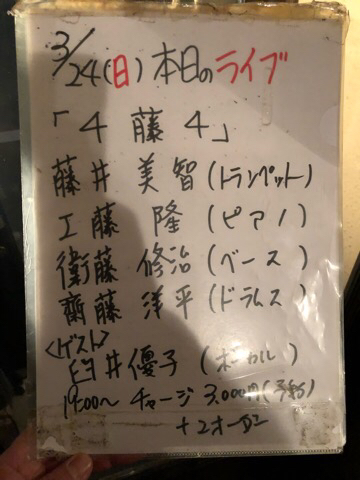 3/24(日)本日のライブ
「4 藤 4」
藤井 美智(トランペット)
工藤 隆(ピアノ)
衛藤 修治(ベース)
齊藤 洋平(ドラムス)
<ゲスト>
井優子(ボーカル)
19:00〜 チャージ 3,000円(予約)
+2オーダー